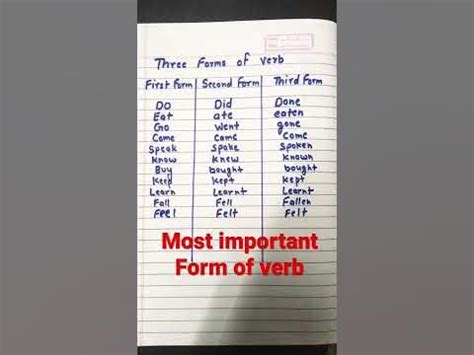 Three Forms of verb
First Form Second Form Third Form
Do Did Done
Eat ate eaten
Go Went gone
Come Came Come
Speak Spoke Spoken
Know Knew Known
Buy bought bought
Keep kept kept
Learn Learnt Learnt
Fall Fell Fallen
Feel Felt Felt
Most important
Form of verb